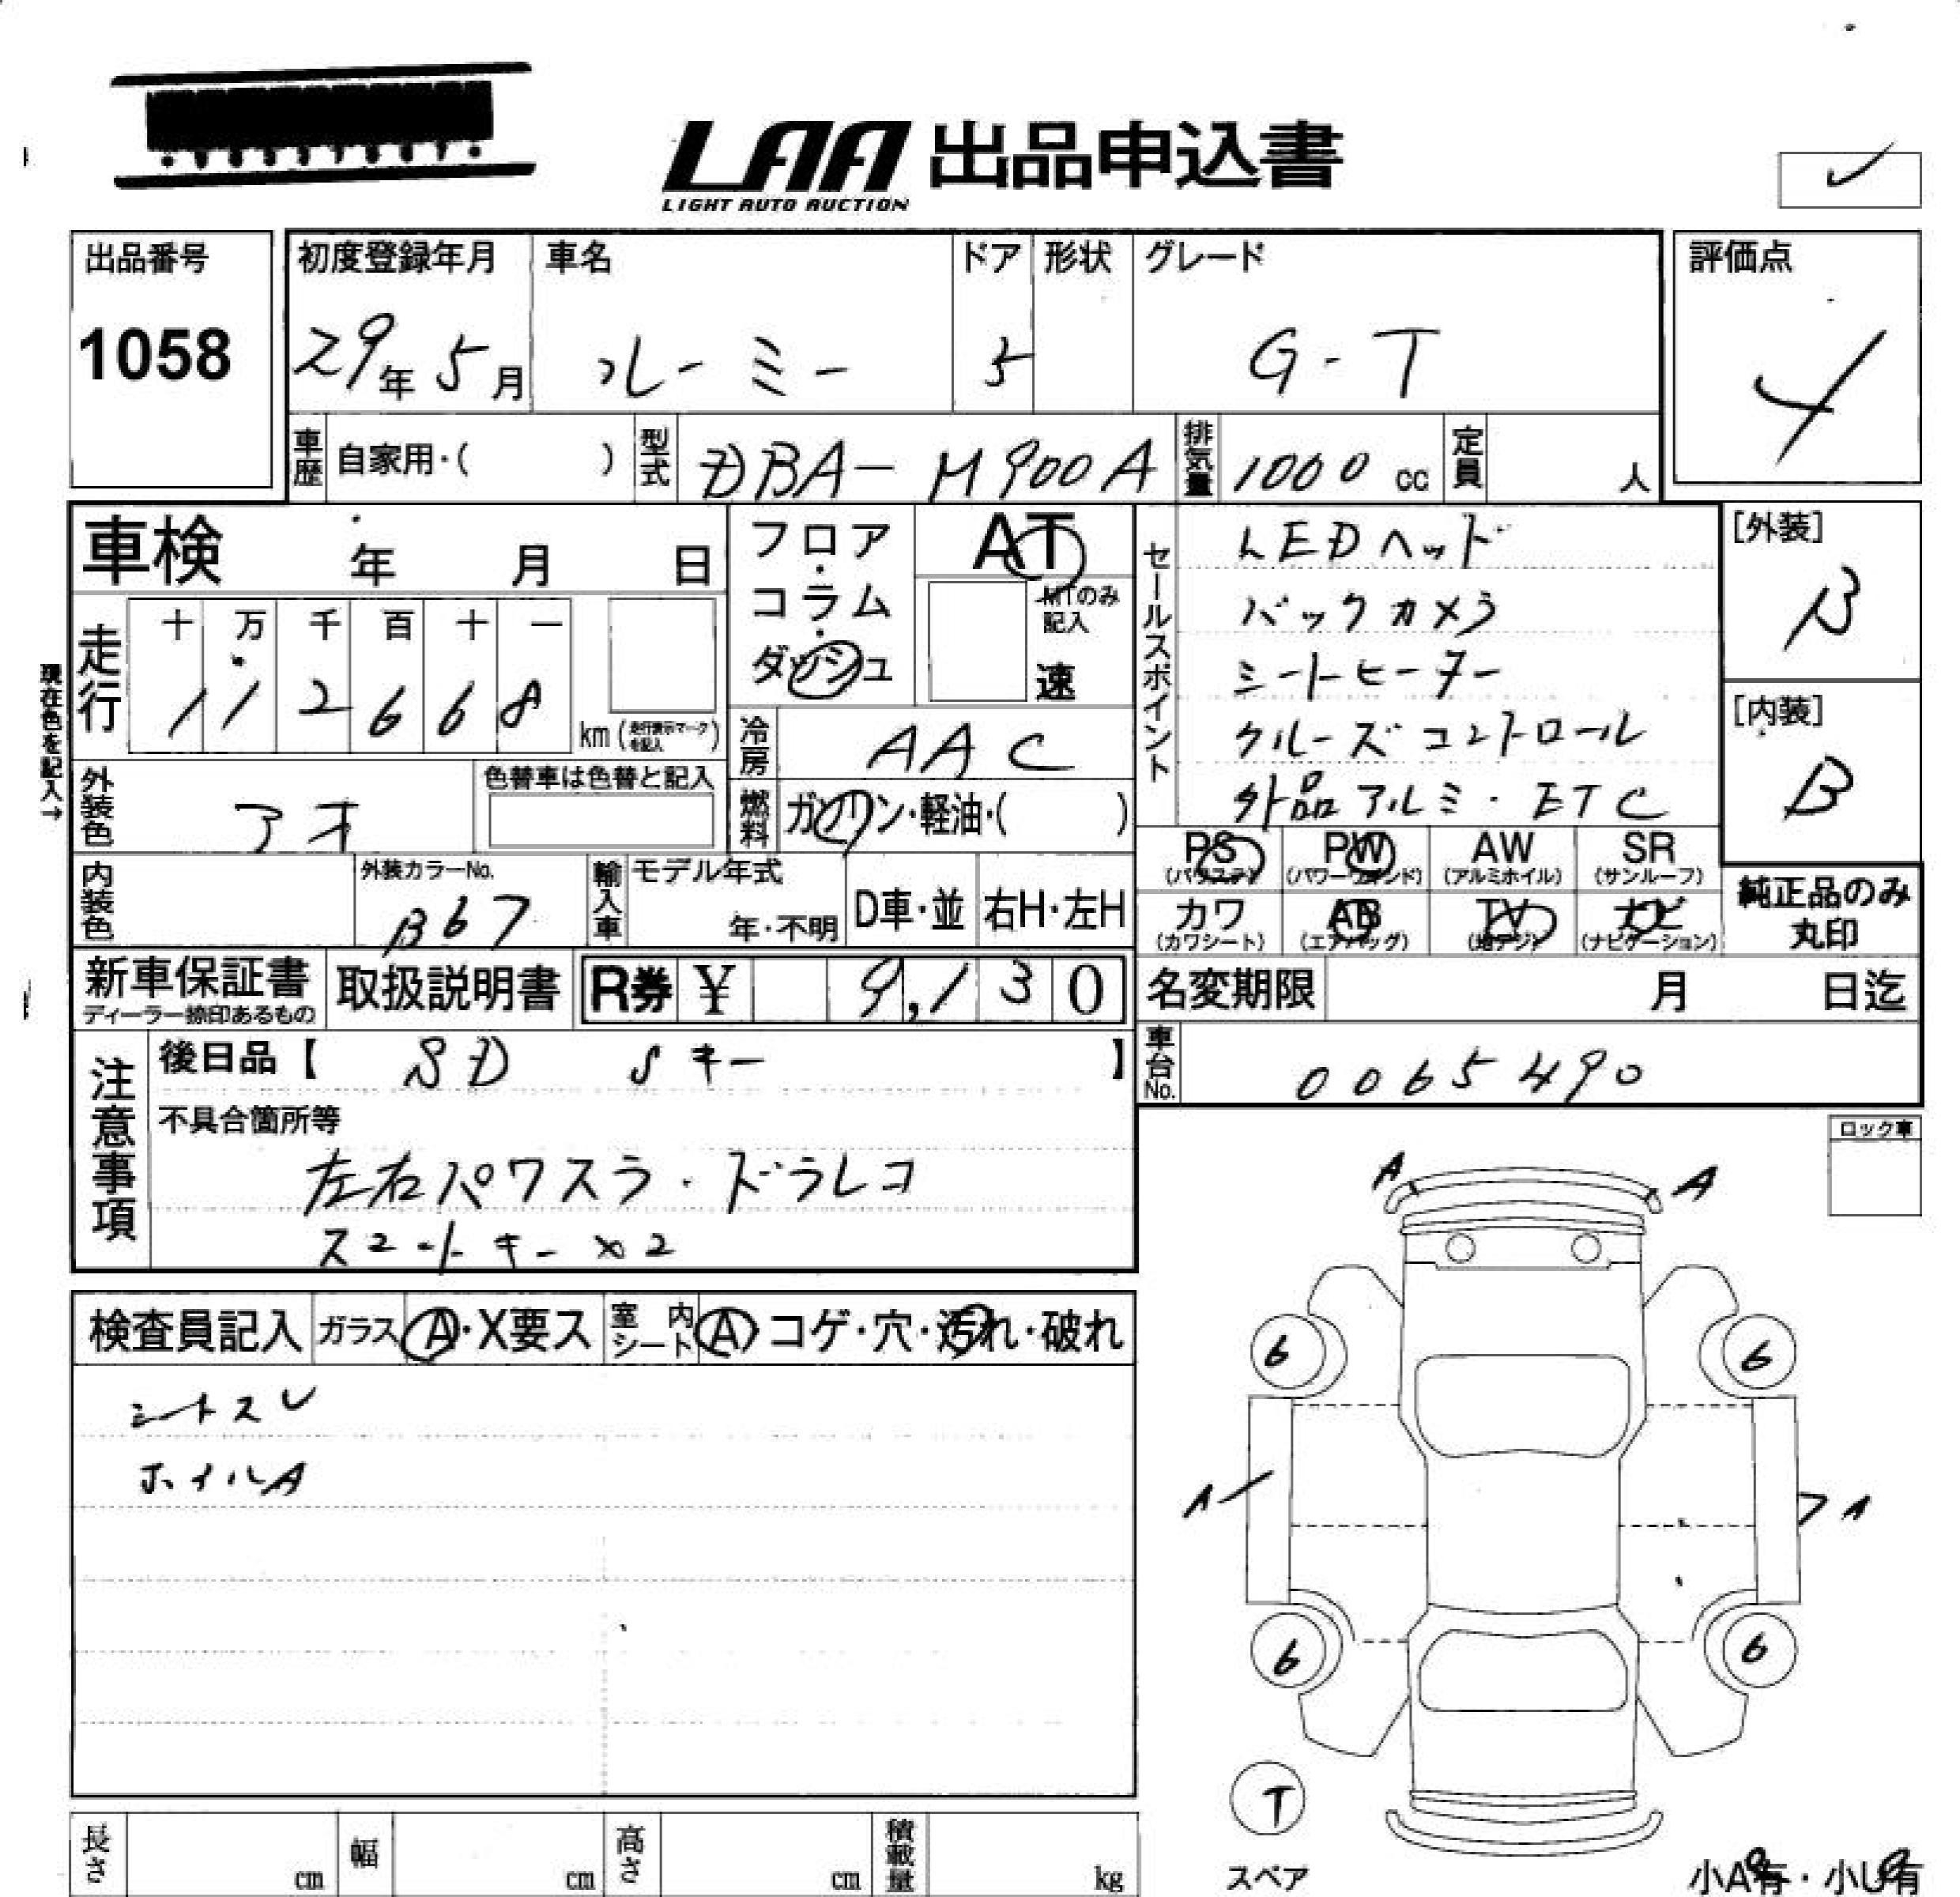 LAA 出品申込書
LIGHT AUTO AUCTION
出品番号
1058
初度登録年月
29年5月
車名
ルーミー
ドア
5
形状
グレード
G-T
評価点
4
車歴 自家用・( )
型式 DBA-M900A
排気量 1000 cc
定員 人
車検 年 月 日
フロア・コラム・ダッシュ
AT
MTのみ記入
速
走行
十 万 千 百 十 一
1 1 2 6 6 8
km (走行表示マークを記入)
現在色を記入→
冷房 AAC
燃料 ガソリン・軽油・( )
外装色 アオ
色替車は色替と記入
内装色
外装カラーNo.
B67
輸入車 モデル年式
年・不明
D車・並 右H・左H
セールスポイント
LEDヘッド
バックカメラ
シートヒーター
クルーズコントロール
外品アルミ・ETC
[外装]
B
[内装]
B
PS (パワステ)
PW (パワーウインド)
AW (アルミホイル)
SR (サンルーフ)
カワ (カワシート)
AB (エアバッグ)
TV (地デジ)
ナビ (ナビゲーション)
純正品のみ
丸印
新車保証書
ディーラー捺印あるもの
取扱説明書
R券 ¥ 9,130
名変期限 月 日迄
車台No. 0065490
注意事項
後日品【 SD Sキー 】
不具合箇所等
左右パワスラ・ドラレコ
スマートキー×2
ロック車
検査員記入
ガラス A・X要ス
室内シート A コゲ・穴・汚れ・破れ
シートスレ
ホイルA
A A
6 6
A A
6 6
T
スペア
小A有・小U有
長さ cm
幅 cm
高さ cm
積載量 kg